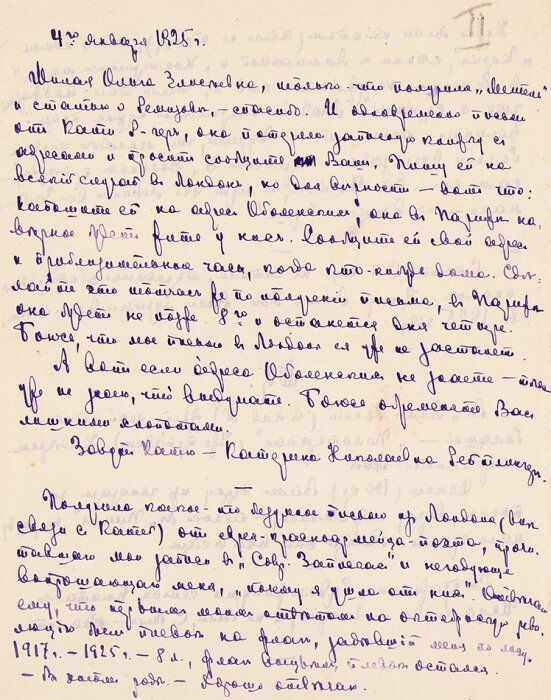 II
4го января 1925 г.
Милая Ольга Елисеевна, только-что получила „Метель"
и статью о Ремизове, – спасибо. И одновременно письмо
от Кати Р-гер, она потеряла записную книжку с
адресами и просит сообщить Ваш. Пишу ей на
всякий случай в Лондон, но для верности – вот что:
напишите ей на адрес Оболенских, она в Париже на-
верное будет у них. Сообщите ей свой адрес
и приблизительные часы, когда кто-нибудь дома. Сде-
лайте это тотчас же по получении письма, в Париже
она будет не позже 8го и останется дня четыре.
Боюсь, что мое письмо в Лондон ее уже не застанет.
А вот если адреса Оболенских не знаете – тогда
уже не знаю, что выдумать. Боюсь обременять Вас
лишними хлопотами.
Зовут Катю – Катерина Николаевна Рейтлингер.
—
Получила какое-то безумное письмо из Лондона (вне
связи с Катей) от еврея-красноармейца-поэта, прочи-
тавшего мои записи в „Совр. Записках" и негодующе
вопрошающего меня, „почему я ушла от них". Отвечаю
ему, что первым моим ответом на октябрьскую рево-
люцию был плевок на флаг, задевший меня по лицу.
1917 г. – 1925 г. – 8 л., флаг плевок остался.
– В хорошо отвечаю.